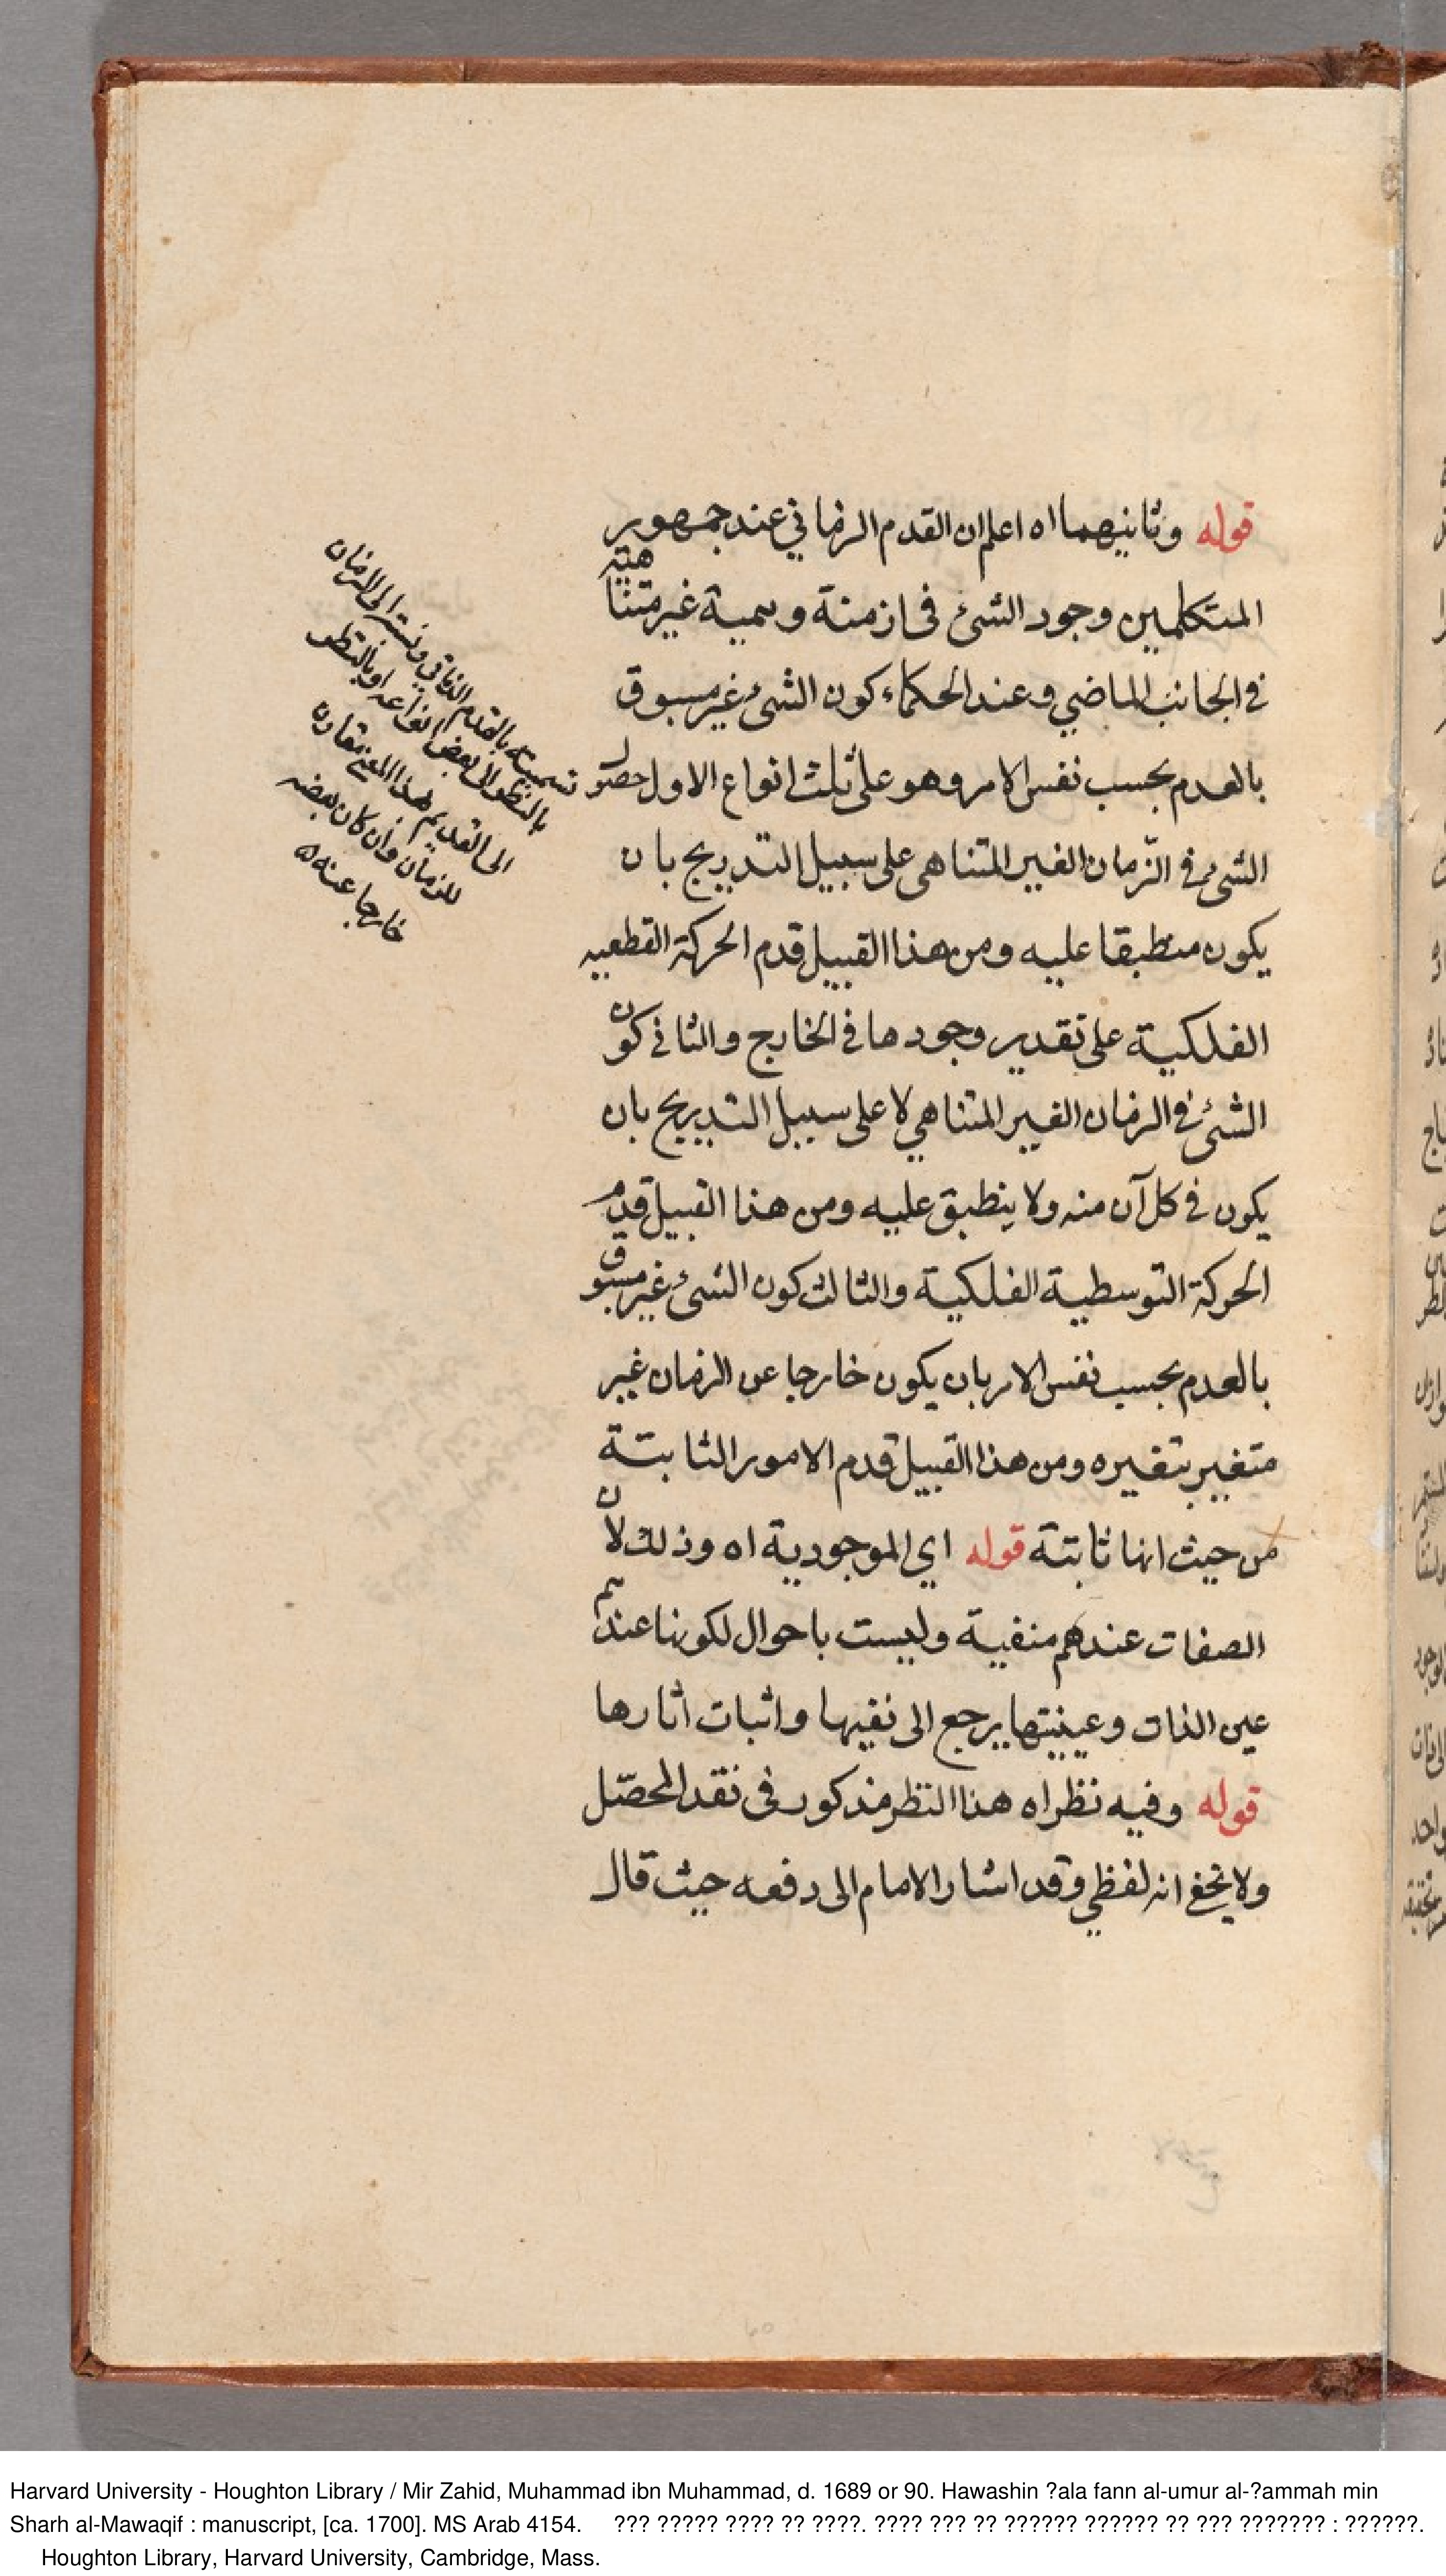 قوله وثانيهما اه اعلم ان القدم الزماني عند جمهور
المتكلمين وجود الشئ في ازمنة وهمية غير متناهية
في الجانب الماضي وعند الحكماء كون الشئ غير مسبوق
بالعدم بحسب نفس الامر وهو على ثلث انواع الاول حصول
الشئ في الزّمان الغير المتناهى على سبيل التدريج بان
يكون منطبقا عليه ومن هذا القبيل قدم الحركة القطعيه
الفلكية على تقدير وجودها في الخارج والثاني كون
الشئ في الزمان الغير المتناهي لا على سبيل التدريج بان
يكون في كل آن منه ولا ينطبق عليه ومن هذا القبيل قدم
الحركة التوسطية الفلكية والثالث كون الشئ غير مسبوق
بالعدم بحسب نفس الامر بان يكون خارجا عن الزمان غير
متغير بتغيره ومن هذا القبيل قدم الامور الثابتة
من حيث انها ثابتة قوله اي الموجودية اه وذلك لان
الصفات عندهم منفية وليست باحوال لكونها عندهم
عين الذات وعينيتها يرجع الى نفيها واثبات اثارها
قوله وفيه نظر اه هذا النظر مذكور في نقد المحصّل
ولا يخفى انه لفظي وقد اشار الامام الى دفعه حيث قال
تسميته بالقدم الزماني ونسبته الى الزمان
بالنظر الى بعض انواعه او بالنظر
الى القديم بهذا المعنى مقارن
للزمان وان كان بعضه
خارجا عنه
Harvard University - Houghton Library / Mir Zahid, Muhammad ibn Muhammad, d. 1689 or 90. Hawashin ?ala fann al-umur al-?ammah min
Sharh al-Mawaqif : manuscript, [ca. 1700]. MS Arab 4154. ??? ????? ???? ?? ????. ???? ??? ?? ?????? ?????? ?? ??? ??????? : ??????.
Houghton Library, Harvard University, Cambridge, Mass.